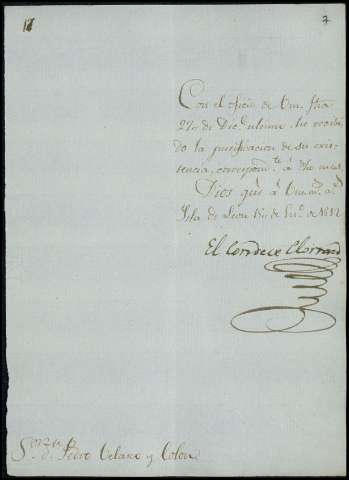 Con el oficio de Vm. fha
27 de Dic.e ultimo, he recivi
do la justificacion de su exis
tencia, correspond.te á dho mes.
Dios gue. á Vm. m.s a.s
Isla de Leon de En.o de 1812
El Conde
S.or D. Pedro Velarte y Colon